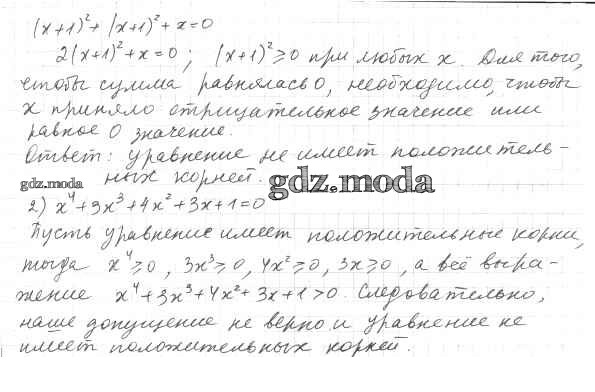 (x+1)²+(x+1)²+x=0
2(x+1)²+x=0; (x+1)²≥0 при любых x. Для того,
чтобы сумма равнялась 0, необходимо, чтобы
x приняло отрицательное значение или
равное 0 значение.
Ответ: уравнение не имеет положитель-
ных корней.
gdz.moda
gdz.moda
2) x⁴+3x³+4x²+3x+1=0
Пусть уравнение имеет положительные корни,
тогда x⁴≥0, 3x³≥0, 4x²≥0, 3x≥0, а всё выра-
жение x⁴+3x³+4x²+3x+1>0. Следовательно,
наше допущение не верно и уравнение не
имеет положительных корней.